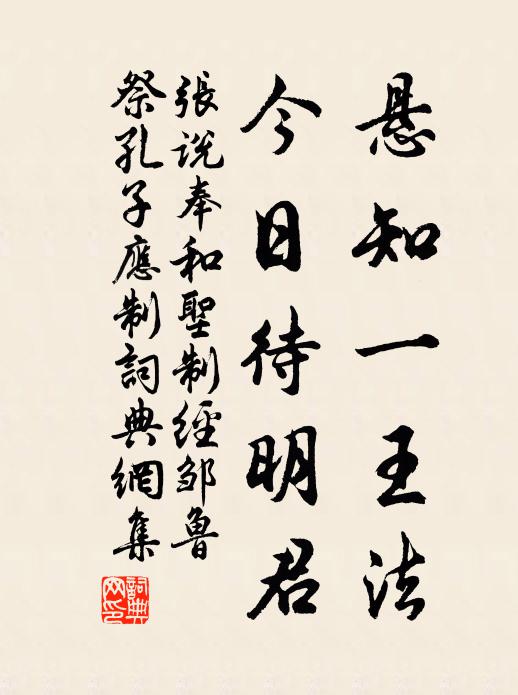 悬知一王法
今日待明君
張説奉和聖制經邹魯
祭孔子應制詞典網集
詞典
网印